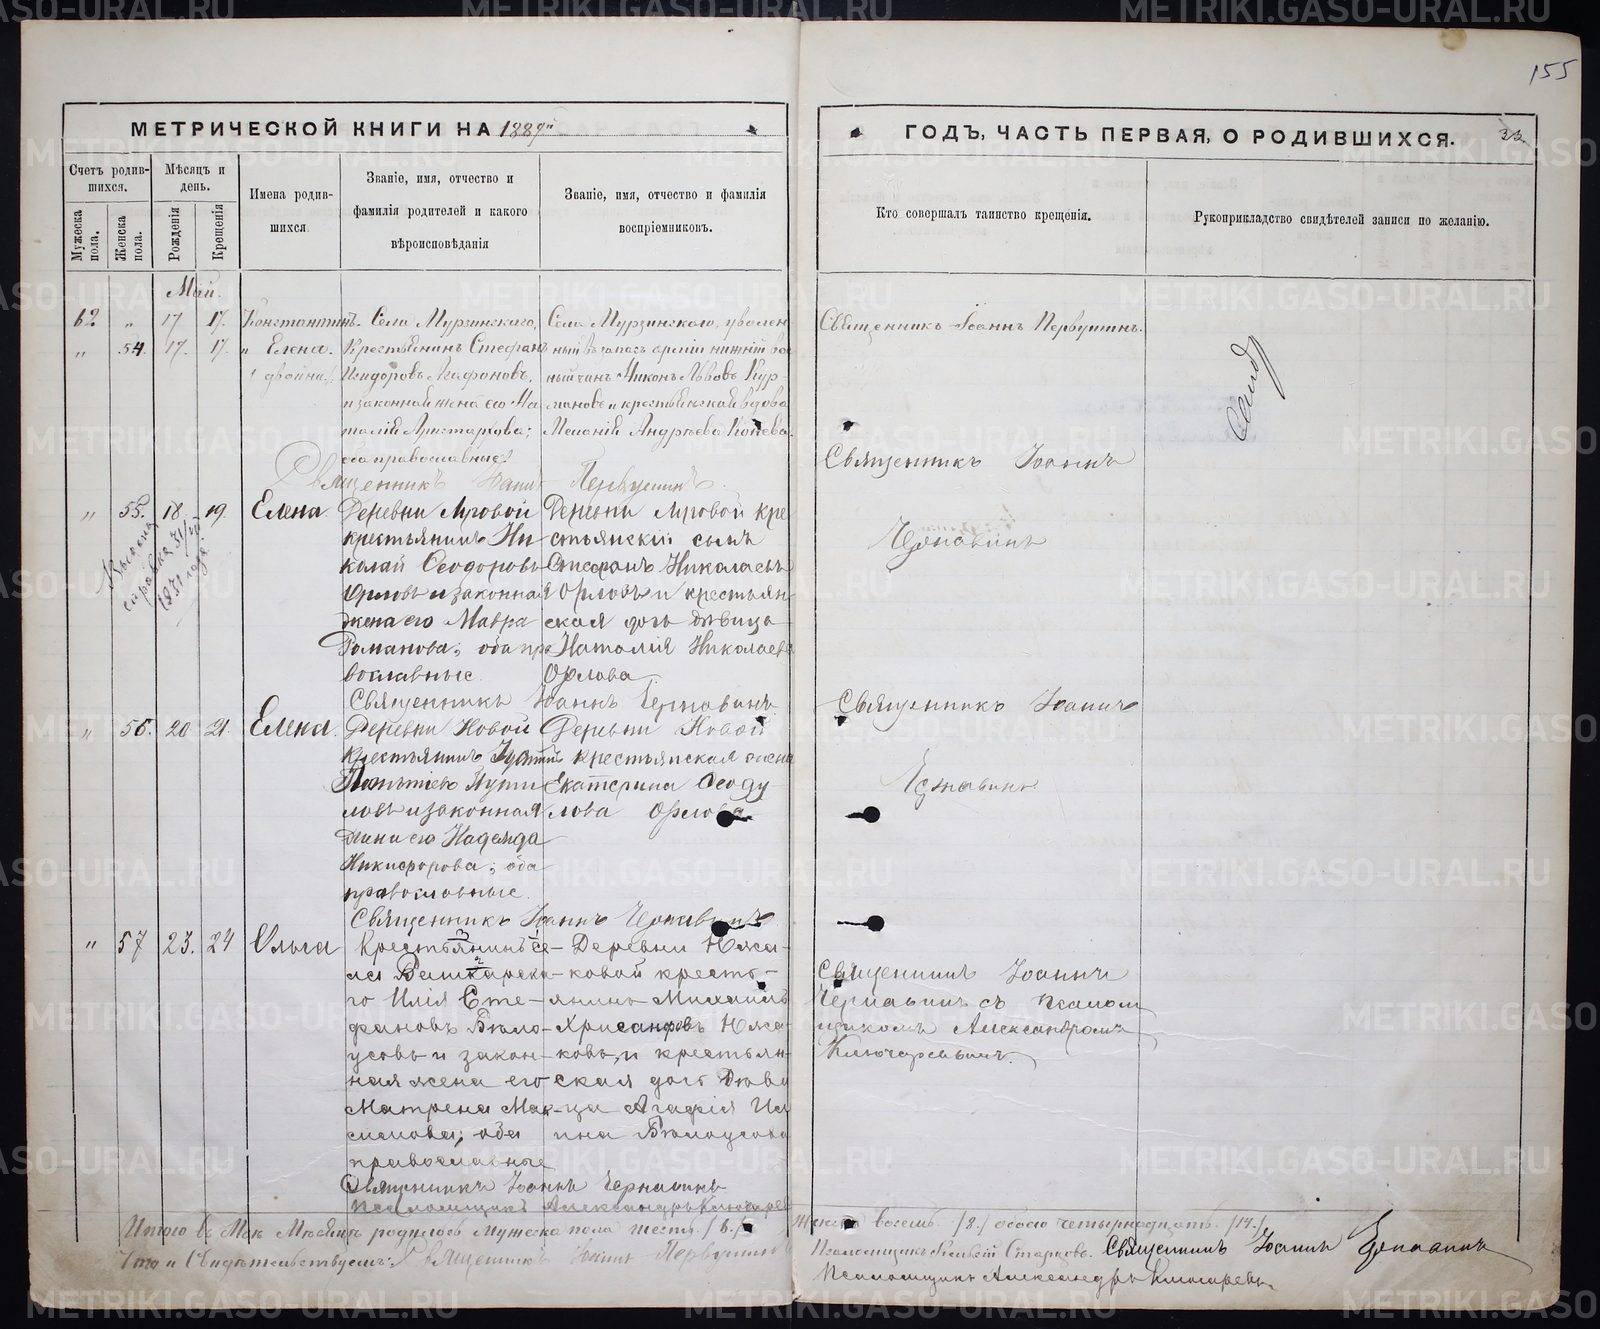 155
МЕТРИЧЕСКОЙ КНИГИ НА 1889й
ГОДЪ, ЧАСТЬ ПЕРВАЯ, О РОДИВШИХСЯ.
Счетъ родив-
шихся.
Мужеска
пола.
Женска
пола.
Мѣсяцъ и
день.
Рожденія
Крещенія
Имена родив-
шихся.
Званіе, имя, отчество и
фамилія родителей и какого
вѣроисповѣданія
Званіе, имя, отчество и фамилія
воспріемниковъ.
Кто совершалъ таинство крещенія.
Рукоприкладство свидѣтелей записи по желанію.
Май.
62 " 17 17. Константинъ.
" 54. 17. 17. и Елена.
(двойни).
Села Мурзинскаго,
Крестьянинъ Стефанъ
Исидоровъ Агафоновъ,
и законная жена его На-
талія Аристархова;
оба православные.
Села Мурзинскаго, уволен
ный въ запасъ арміи нижній во
ный чинъ Никонъ Львовъ Кур-
мановъ и крестьянская вдова
Меланія Андреева Копева.
Священникъ Іоаннъ Первушинъ.
Священникъ Іоаннъ Первушинъ.
" 55. 18. 19. Елена
Выдана
справка
Деревни Луговой
крестьянинъ Ни
колай Ѳеодоровъ
Орловъ и законная
жена его Мавра
Романова; оба пра
вославные
Деревни Луговой кре
стьянскій сынъ
Стефанъ Николаевъ
Орловъ и крестьян-
ская дочь дѣвица
Наталія Николаева
Орлова
Священникъ Іоаннъ Чернавинъ
Священникъ Іоаннъ
Чернавинъ
" 56. 20 21. Елена.
Деревни Новой
крестьянинъ
и законная
жена его Надежда
Никифорова; оба
православные.
Деревни Новой
крестьянская жена
Екатерина Ѳеоду
лова Орлова
Священникъ Іоаннъ Чернавинъ
Священникъ Іоаннъ
Чернавинъ
" 57 23. 24 Ольга
Крестьянинъ се-
ла
го Илія Сте-
фановъ Бѣло-
усовъ и закон-
ная жена его
Матрена Мак-
симова; оба
православные
Деревни Южа-
ковой кресть-
янинъ Михаилъ
Хрисанфовъ Южа-
ковъ, и крестьян-
ская дочь Дѣви
ца Агафія Ил
ина Бѣлоусова
Священникъ Іоаннъ Чернавинъ
Псаломщикъ Александръ Ключаревъ
Священникъ Іоаннъ
Чернавинъ съ псалом
щикомъ Александромъ
Ключаревымъ.
Итого въ Маѣ Мѣсяцѣ родилось мужеска пола шесть /6./
Женска восемь /8./ обоего четырнадцать. /14./
Что и Свидѣтельствуемъ: Священникъ Іоаннъ Первушинъ
Псаломщикъ Старцовъ. Священникъ Іоаннъ Чернавинъ
Псаломщикъ Александръ Ключаревъ
METRIKI.GASO-URAL.RU